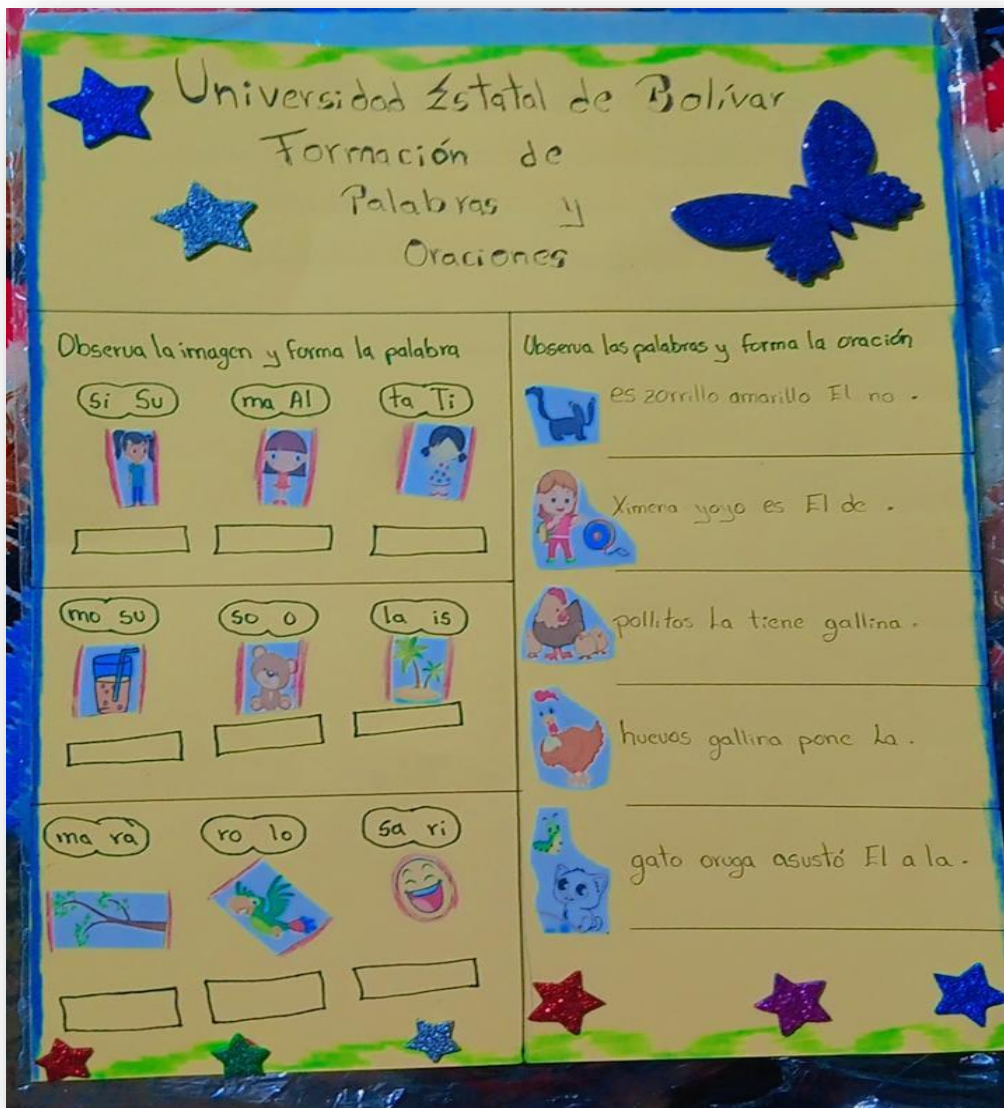 Universidad Estatal de Bolívar
Formación de
Palabras y
Oraciones
Observa la imagen y forma la palabra
si Su
ma Al
ta Ti
mo su
so o
la is
ma ra
ro lo
sa ri
Observa las palabras y forma la oración
es zorrillo amarillo El no .
Ximena yoyo es El de .
pollitos La tiene gallina .
huevos gallina pone La .
gato oruga asustó El a la .